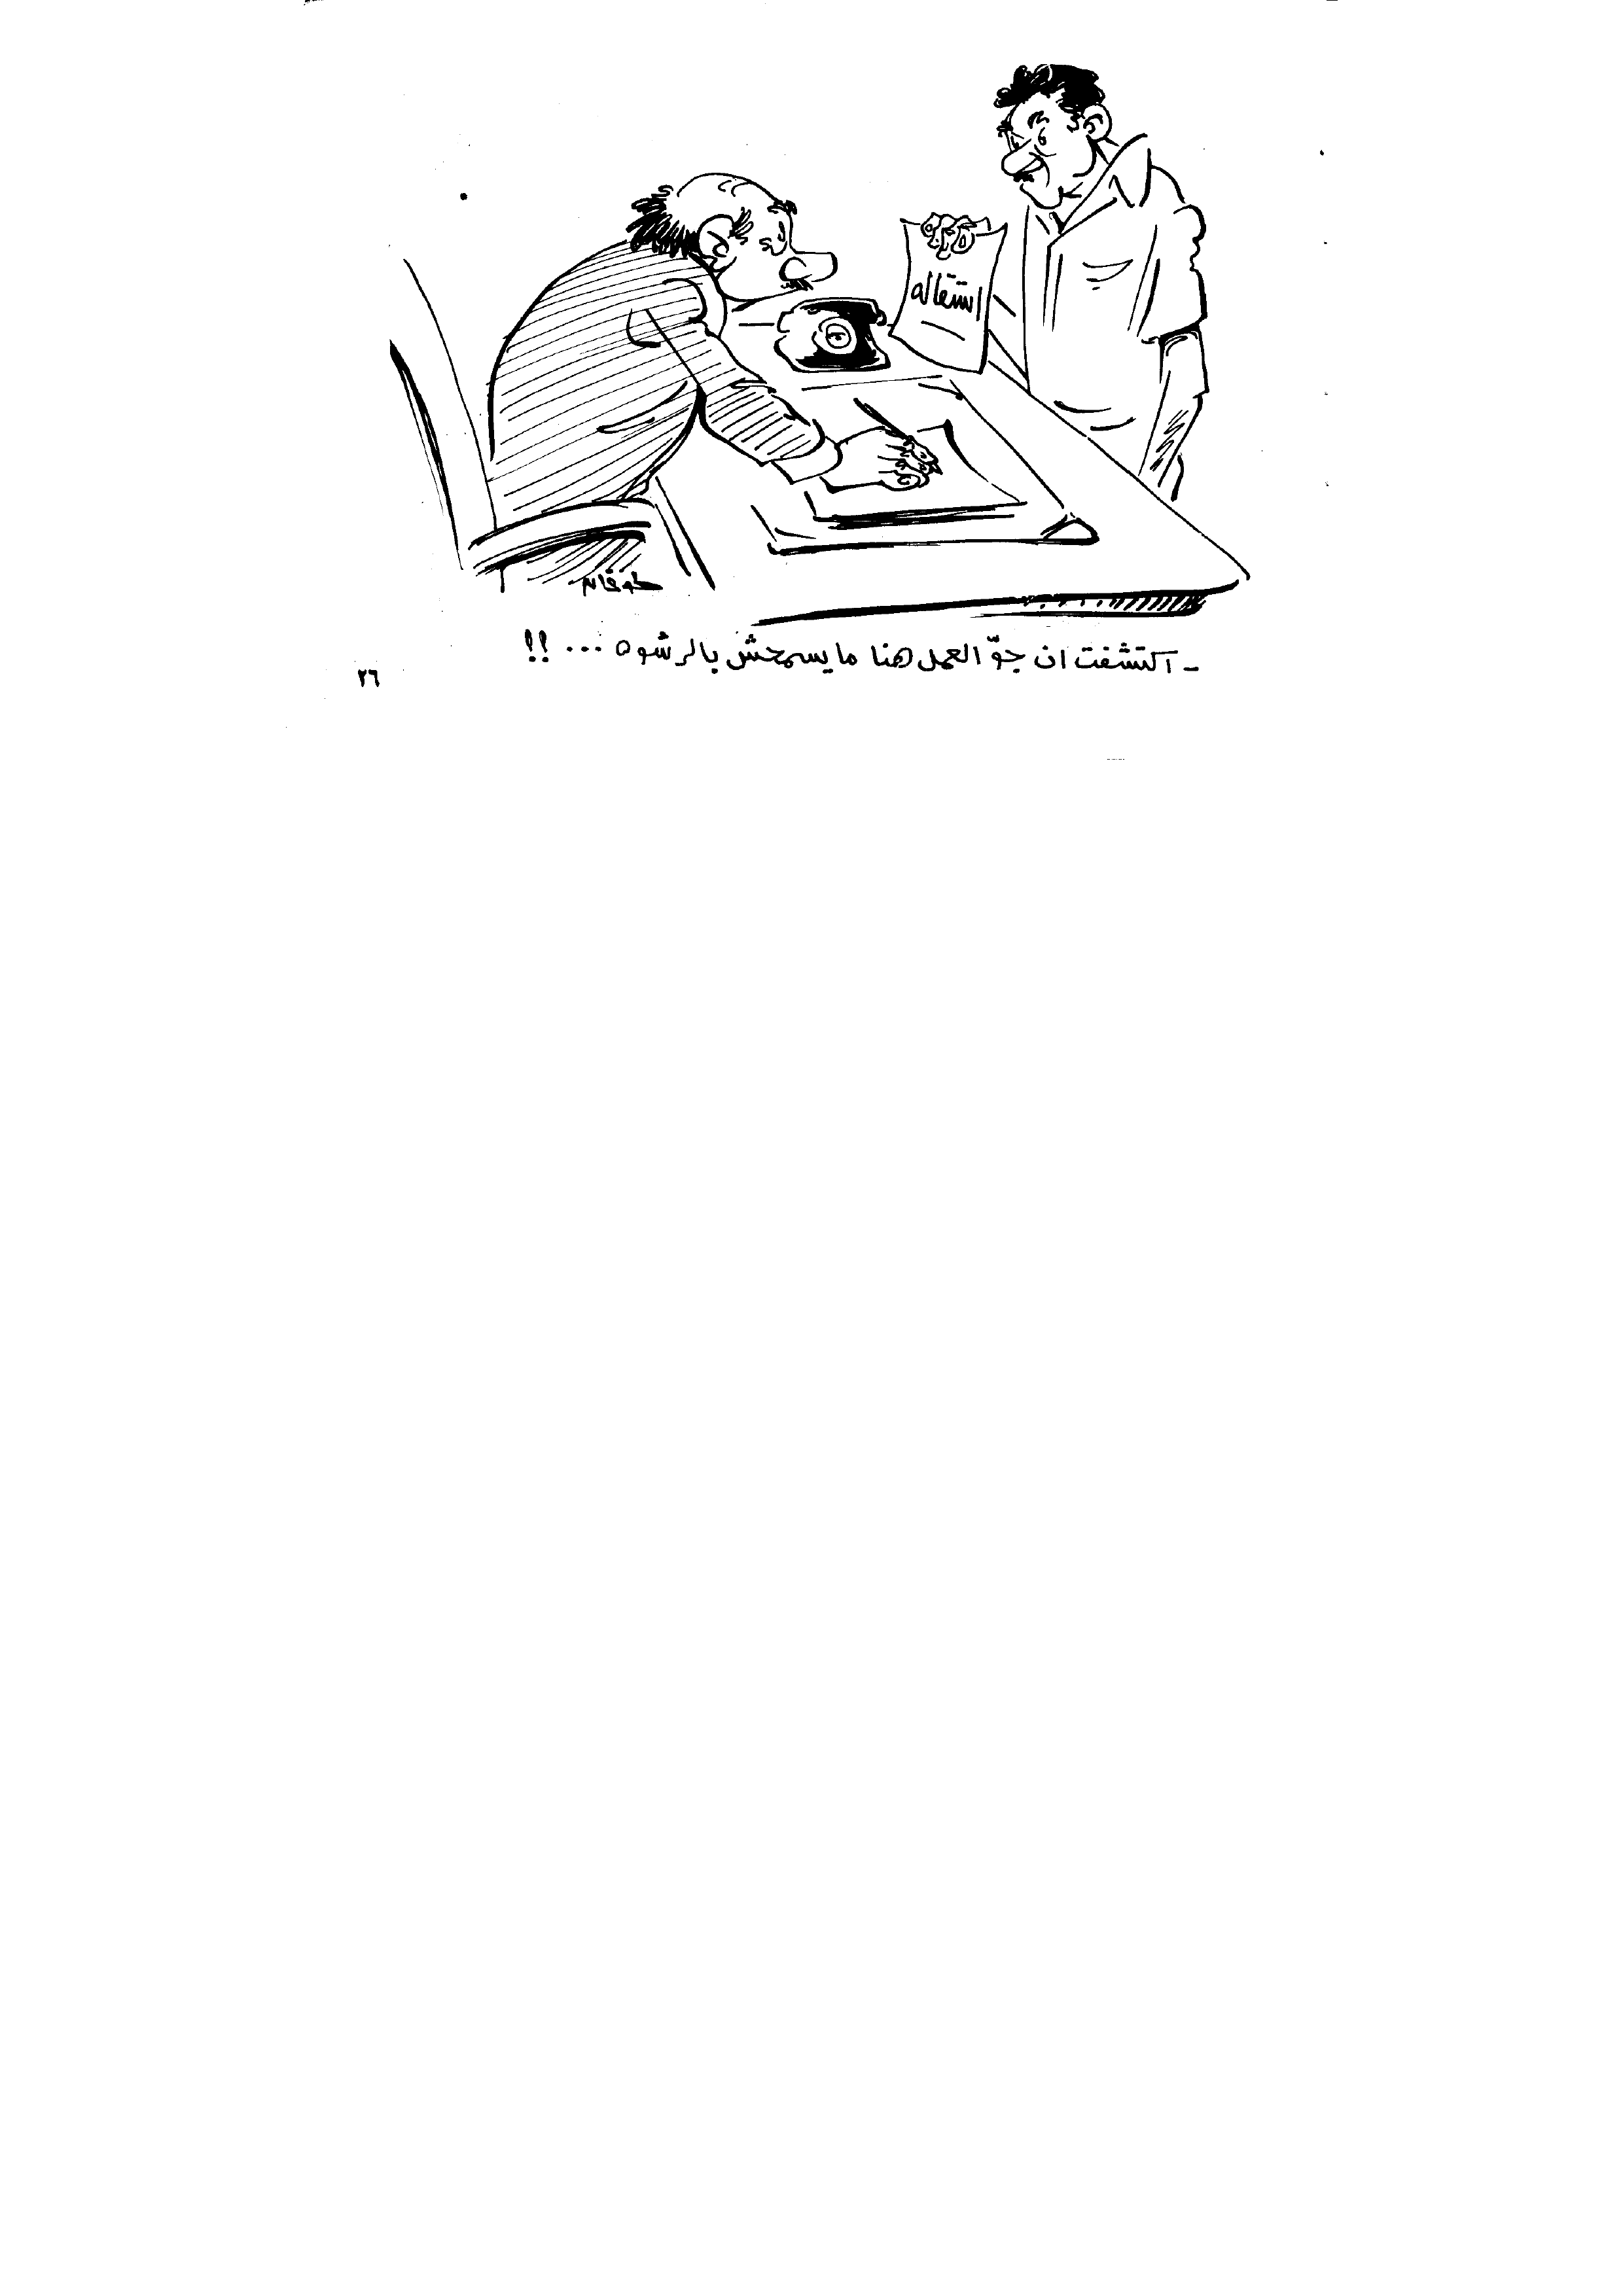 استقاله
- اكتشفت ان جوّ العمل هنا ما يسمحش بالرشوه ...!!
٢٦